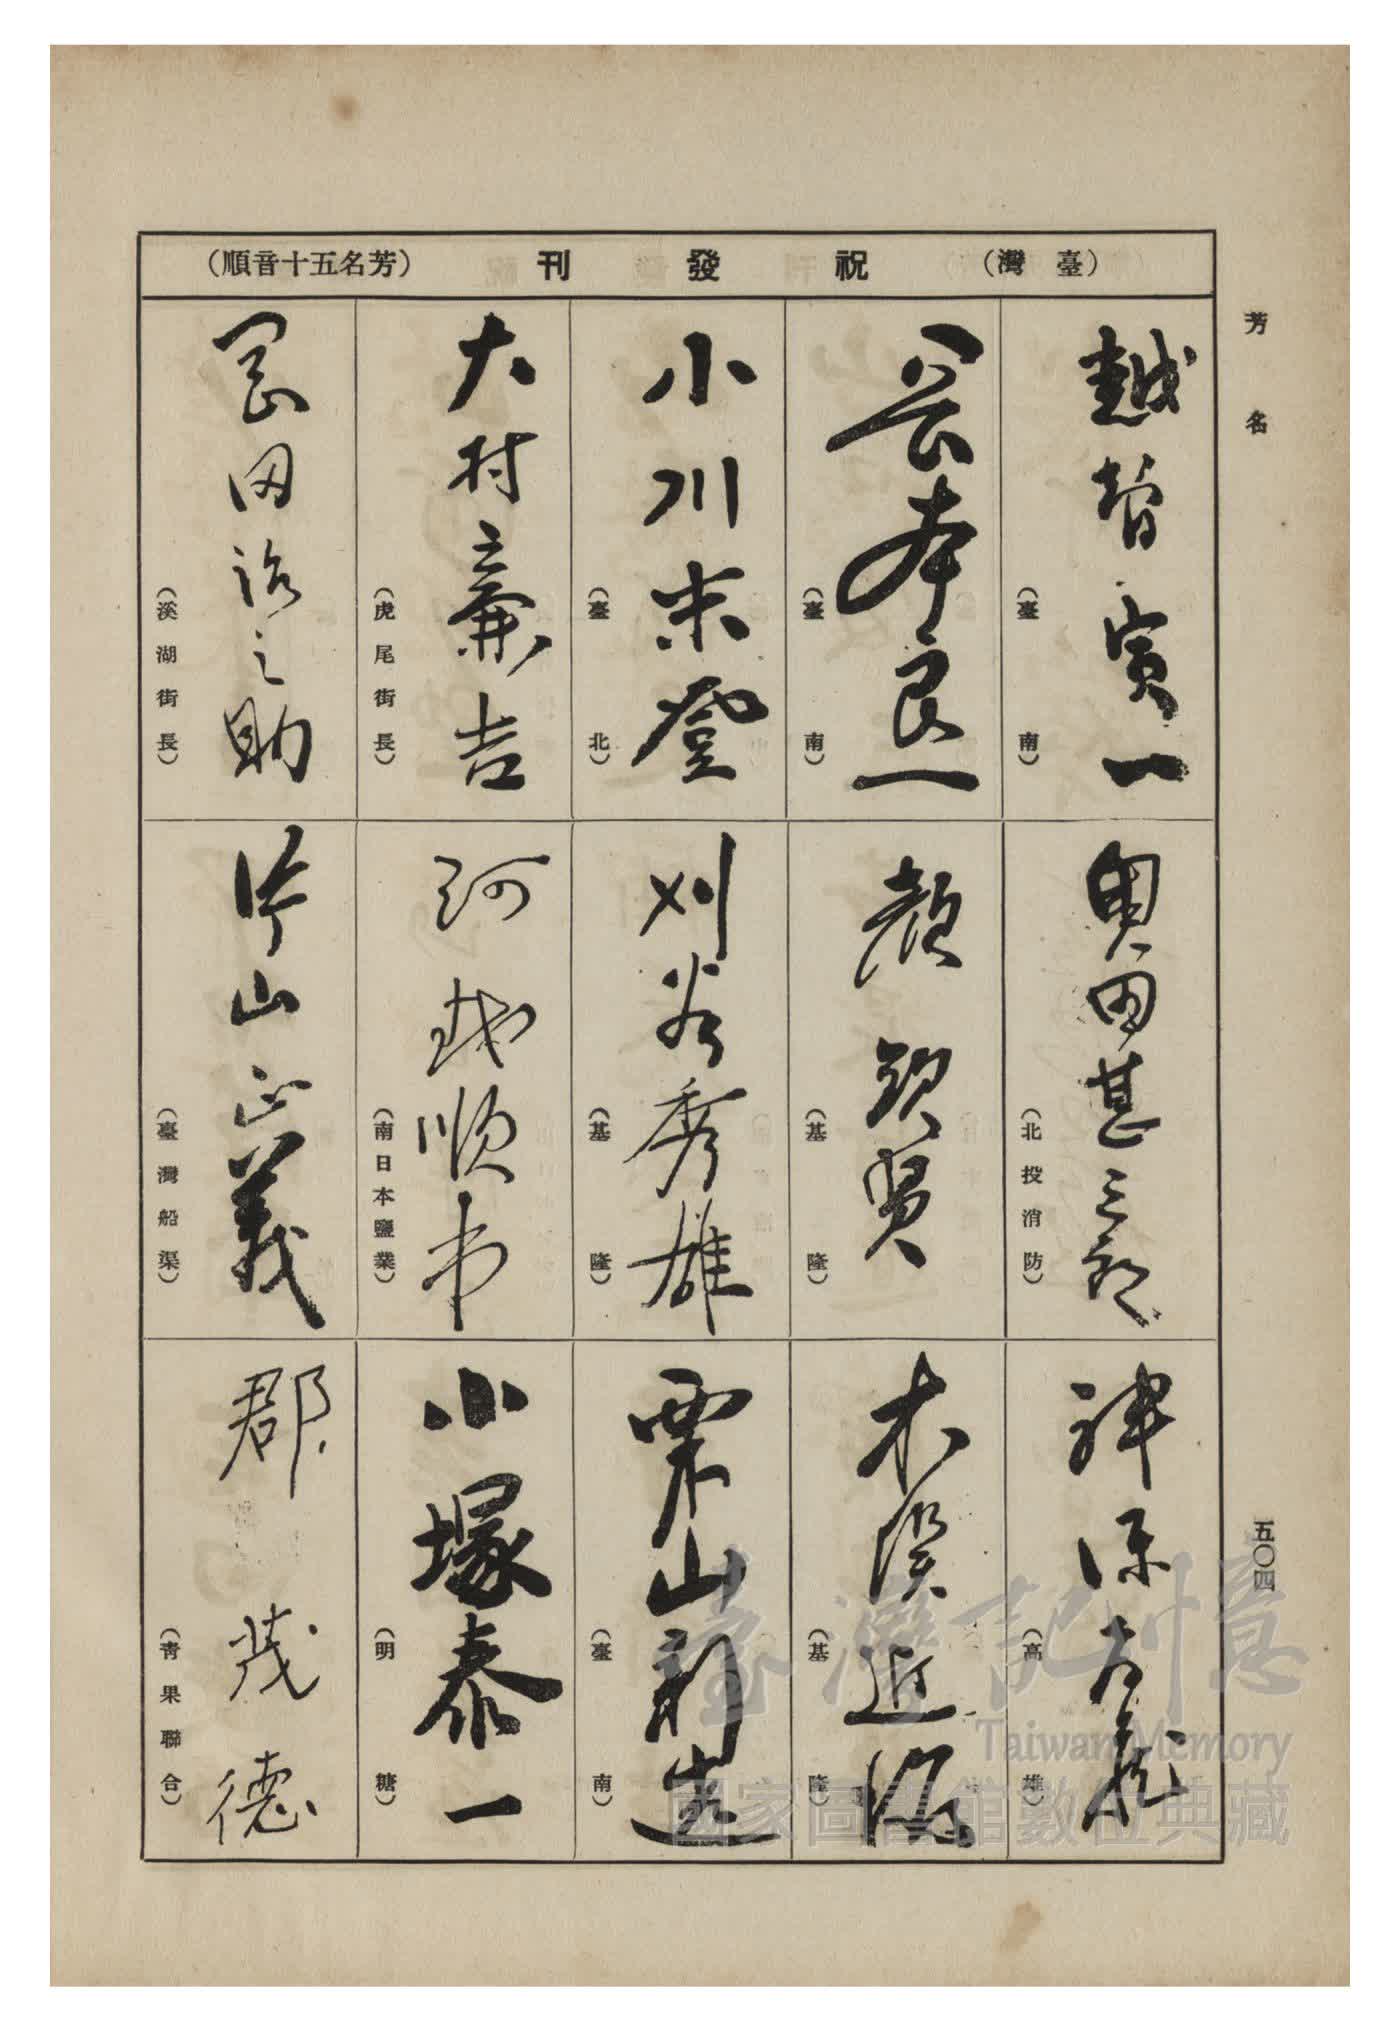 (臺灣) 祝發刊 (芳名五十音順)
芳名
越智寅一
(臺南)
岡本良一
(臺南)
小川末登
(臺北)
大村兼吉
(虎尾街長)
岡田治之助
(溪湖街長)
奧田甚三郎
(北投消防)
顏欽賢
(基隆)
刈谷秀雄
(基隆)
河越順市
(南日本鹽業)
片山正義
(臺灣船渠)
神保
(高雄)
木
(基隆)
栗山新造
(臺南)
小塚泰一
(明糖)
郡茂德
(青果聯合)
五〇四
臺灣記憶
Taiwan Memory
國家圖書館數位典藏